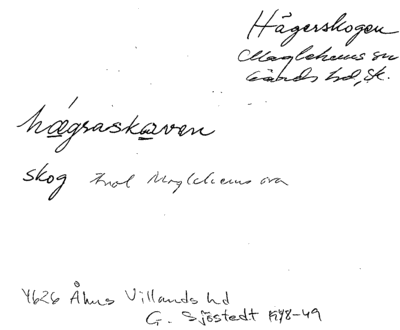 Hägerskogen
Maglehems sn
Gärds hd, Sk.
hǻgraskaven
skog
Maglehems ora
4626 Åhus Villands hd
G. Sjöstedt 1948-49